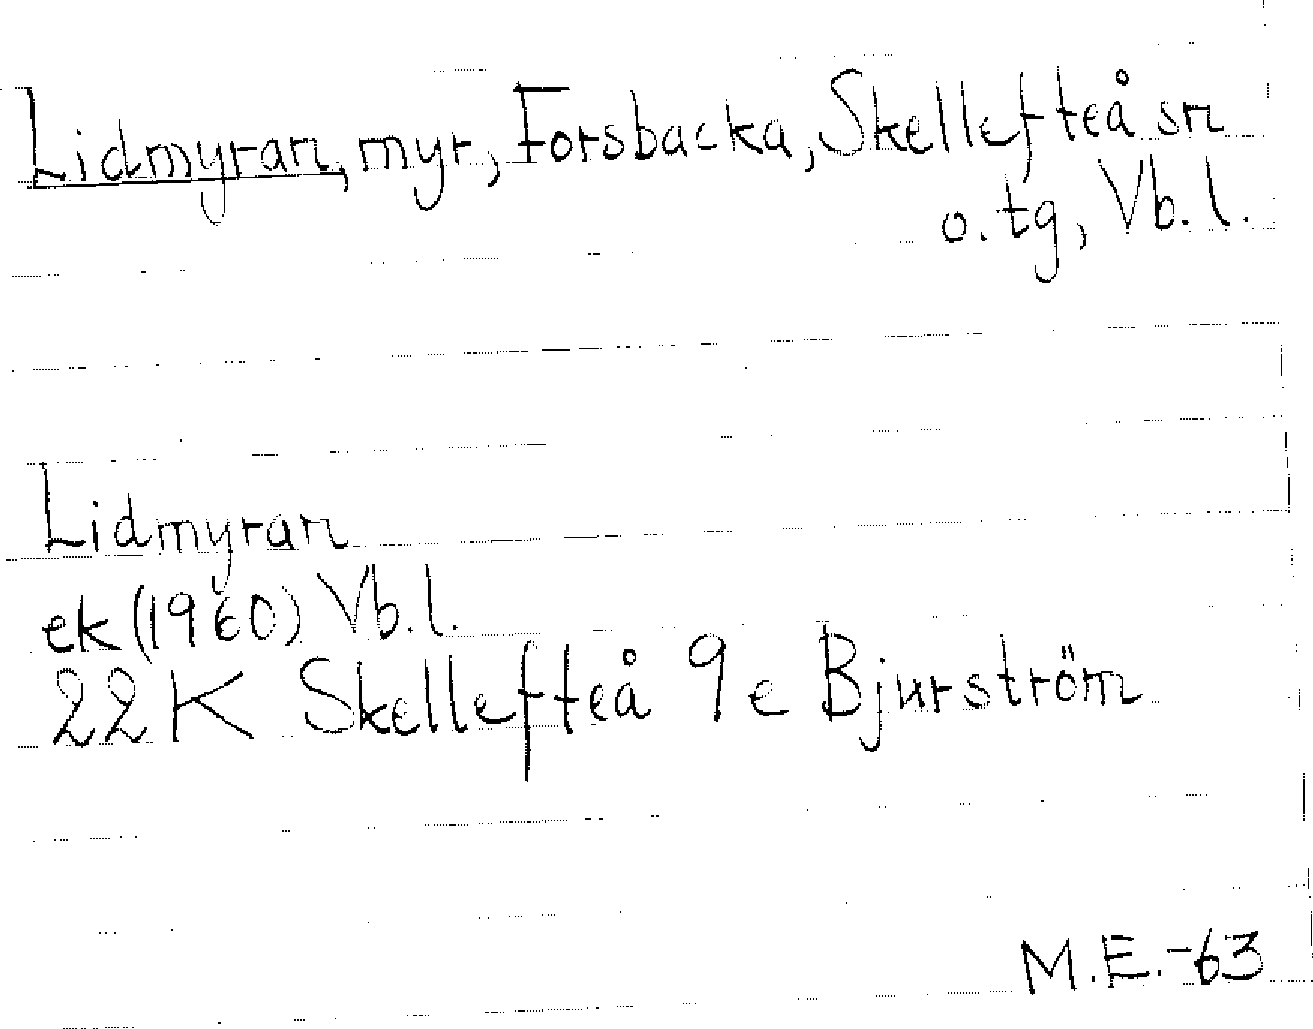 Lidmyran, myr, Forsbacka, Skellefteå sn
o. tg, Vb. l.
Lidmyran
ek (1960) Vb. l.
22K Skellefteå 9e Bjurström
M.E.-63